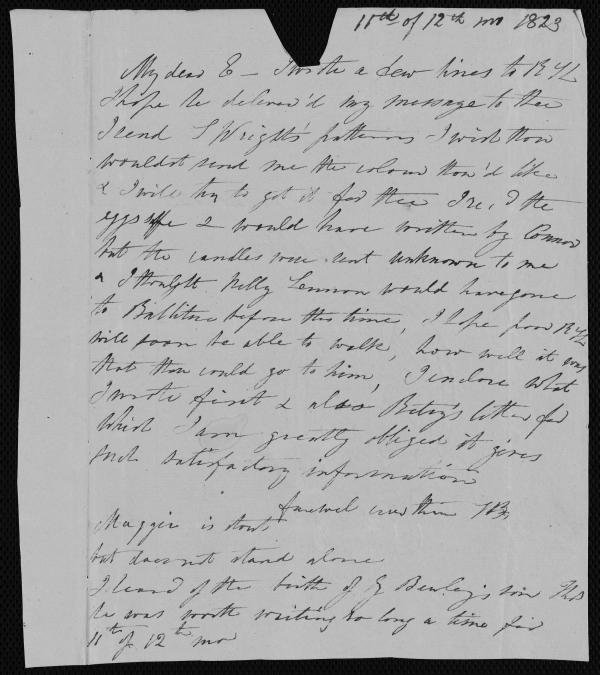 11th of 12th mo 1823
My dear E - I wrote a few lines to R Y L
I hope he deliver'd my message to thee
I send S Wright's patterns I wish thou
wouldst send me the colour thou'd like
& I will try to get it for thee I rec,d the
eggs safe & would have written by Connor
but the candles were sent unknown to me
I thought Nelly Lennon would have gone
to Ballitore before this time, I hope poor R Y L
will soon be able to walk, how well it was
that thou could go to him, I enclose what
I wrote first & also Betsy's letter for
which I am greatly obliged it gives
such satisfactory information
farewel ever thine
Maggie is stout
but does not stand alone
I heard of the birth of Bewley's son
he was worth waiting so long a time for
11th of 12th mo